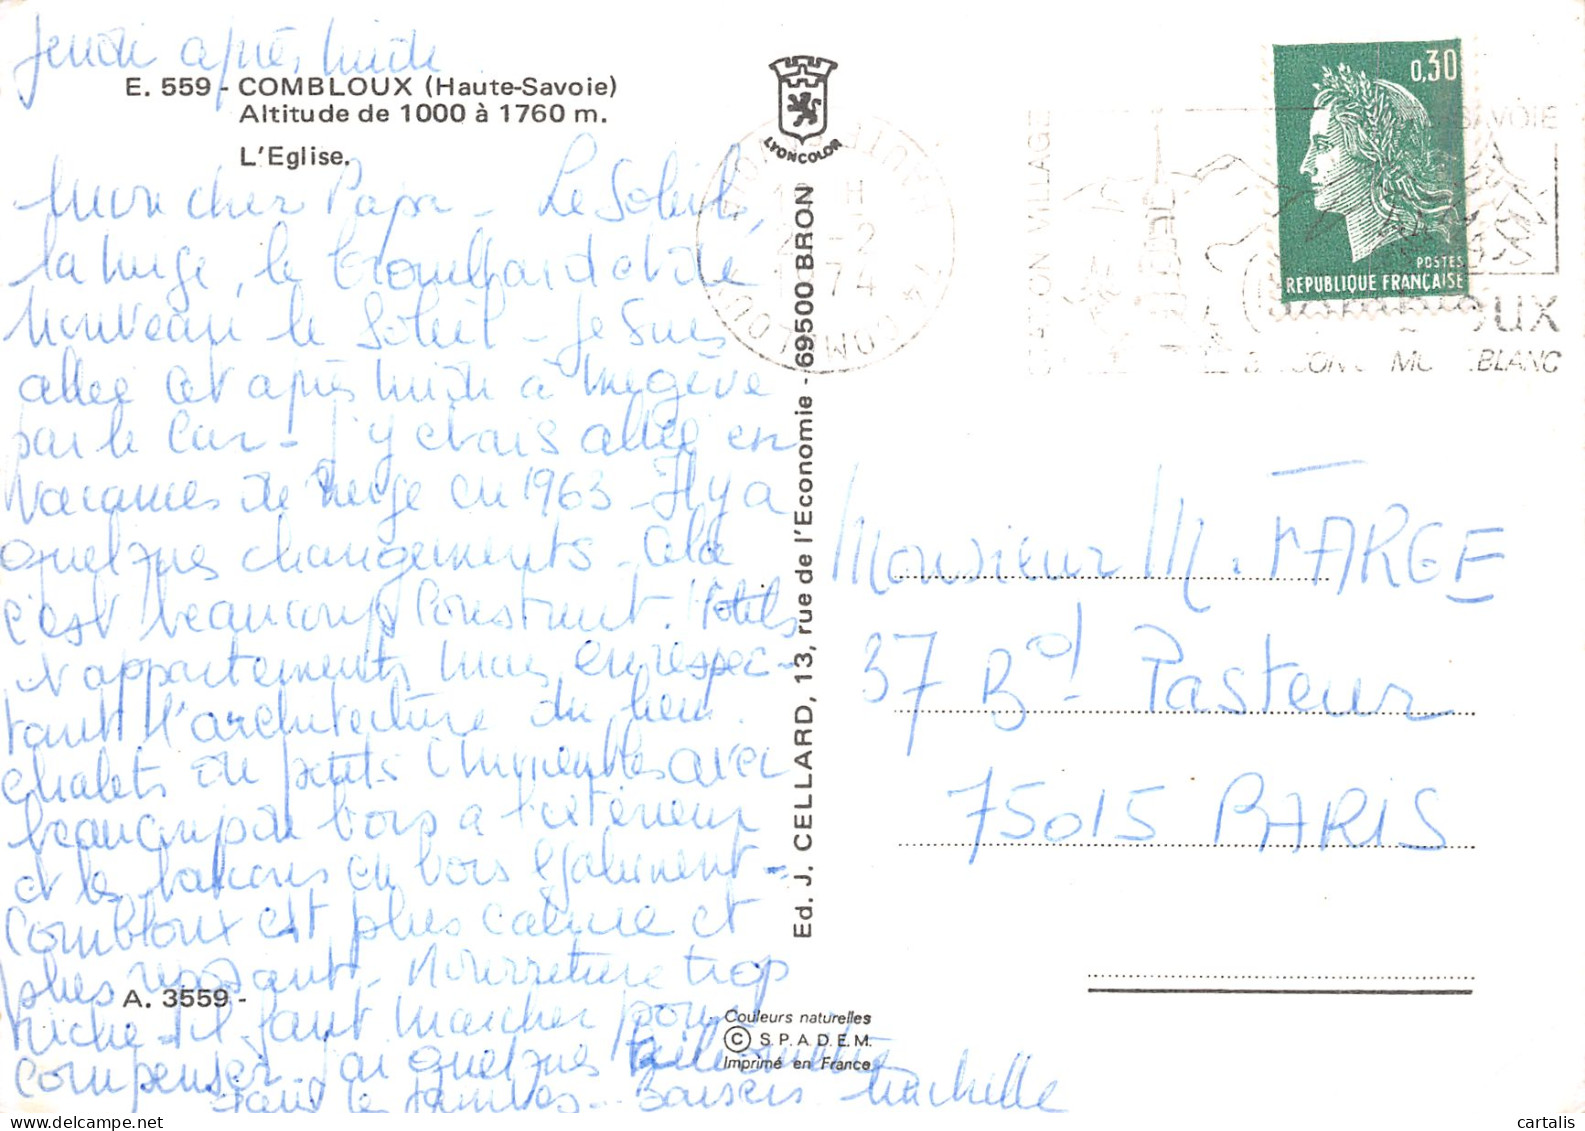 Jeudi après midi
E. 559 - COMBLOUX (Haute-Savoie)
Altitude de 1000 à 1760 m.
L'Eglise.
Mon cher Papa - Le Soleil,
la neige, le brouillard et de
nouveau le Soleil - Je suis
allée cet après midi à Megève
par le Car - j'y étais allée en
vacances de neige en 1963 - Il y a
quelques changements - Cela
s'est beaucoup construit. Hôtels
et appartements mais en respec-
tant l'architecture du lieu.
Chalets ou petits immeubles avec
beaucoup de bois à l'extérieur
et les balcons en bois également -
Combloux est plus calme et
plus reposant - Nourriture trop
riche - il faut marcher pour
compenser - j'ai quelques kilomètres
dans les jambes - Baisers Machelle
A. 3559 -
LYONCOLOR
Ed. J. CELLARD, 13, rue de l'Economie - 69500 BRON
Couleurs naturelles
© S.P.A.D.E.M.
Imprimé en France
0,30
POSTES
REPUBLIQUE FRANÇAISE
HAUTE
COMBLOUX
H
-2
1974
VILLAGE
SAVOIE
BLANC
Monsieur M. FARGE
37 Bd. Pasteur
75015 PARIS
cartalis